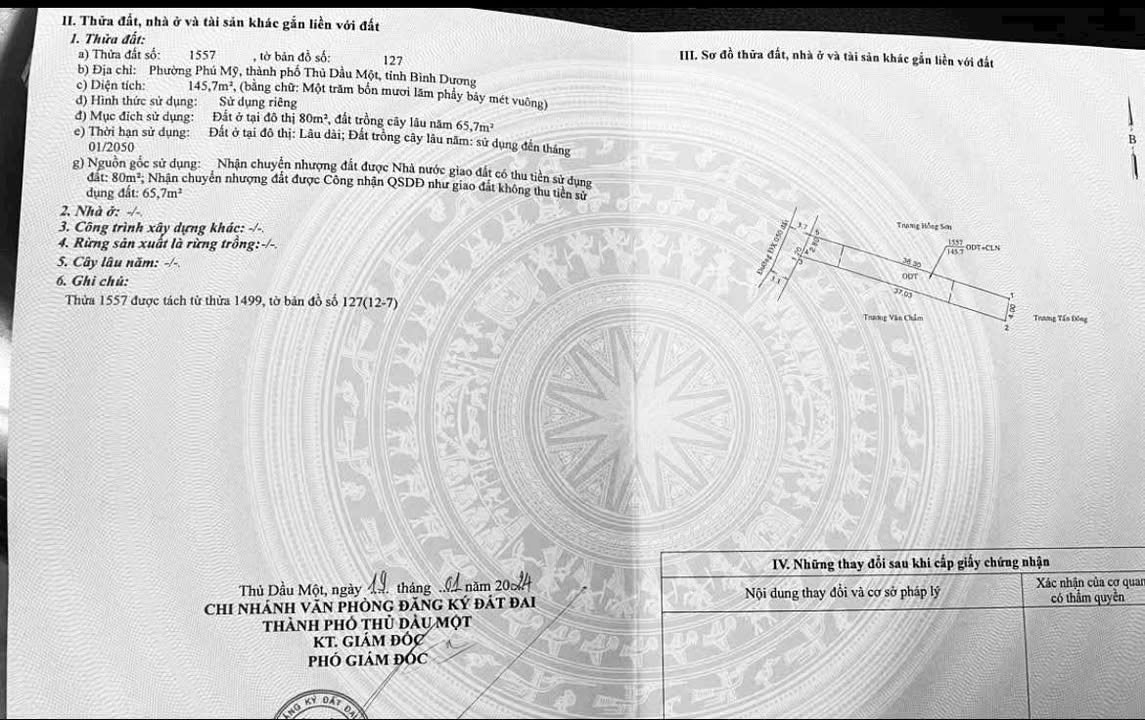 II. Thửa đất, nhà ở và tài sản khác gắn liền với đất
1. Thửa đất:
a) Thửa đất số: 1557 , tờ bản đồ số: 127
b) Địa chỉ: Phường Phú Mỹ, thành phố Thủ Dầu Một, tỉnh Bình Dương
c) Diện tích: 145,7m², (bằng chữ: Một trăm bốn mươi lăm phẩy bảy mét vuông)
d) Hình thức sử dụng: Sử dụng riêng
đ) Mục đích sử dụng: Đất ở tại đô thị 80m², đất trồng cây lâu năm 65,7m²
e) Thời hạn sử dụng: Đất ở tại đô thị: Lâu dài; Đất trồng cây lâu năm: sử dụng đến tháng
01/2050
g) Nguồn gốc sử dụng: Nhận chuyển nhượng đất được Nhà nước giao đất có thu tiền sử dụng
đất: 80m²; Nhận chuyển nhượng đất được Công nhận QSDĐ như giao đất không thu tiền sử
dụng đất: 65,7m²
2. Nhà ở: -/-.
3. Công trình xây dựng khác: -/-.
4. Rừng sản xuất là rừng trồng:-/-.
5. Cây lâu năm: -/-.
6. Ghi chú:
Thửa 1557 được tách từ thửa 1499, tờ bản đồ số 127(12-7)
Thủ Dầu Một, ngày 19 tháng 01 năm 2024
CHI NHÁNH VĂN PHÒNG ĐĂNG KÝ ĐẤT ĐAI
THÀNH PHỐ THỦ DẦU MỘT
KT. GIÁM ĐỐC
PHÓ GIÁM ĐỐC
NG KÝ ĐẤT ĐA
III. Sơ đồ thửa đất, nhà ở và tài sản khác gắn liền với đất
B
Trương Hồng Sơn
1557
145.7
ODT+CLN
Đường ĐX 050 đất
3.7
5
4
3
3.1
36.30
ODT
37.03
1
4.00
2
Trương Văn Chẩm
Trương Tấn Đông
IV. Những thay đổi sau khi cấp giấy chứng nhận
Nội dung thay đổi và cơ sở pháp lý
Xác nhận của cơ quan
có thẩm quyền